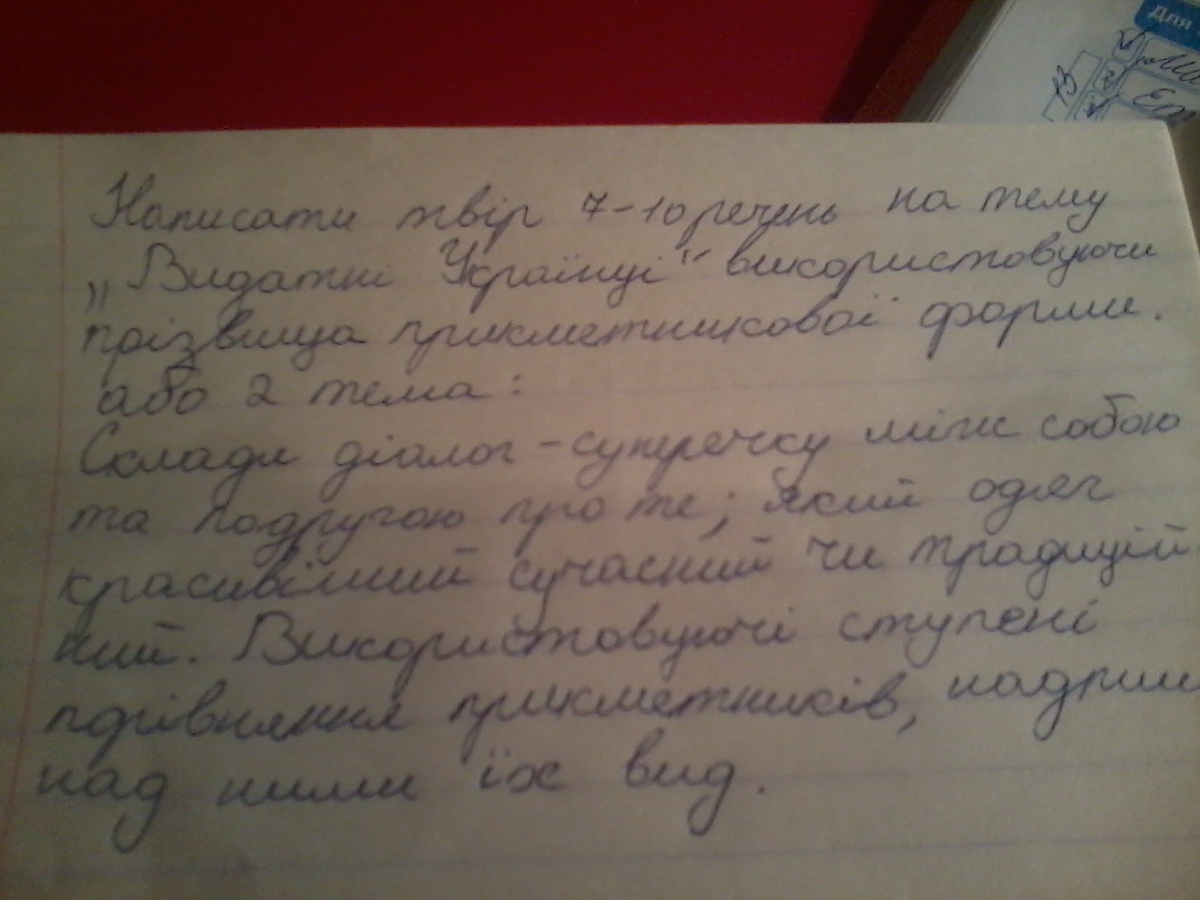 Для
Написати твір 7-10 речень на тему
„Видатні Українці" використовуючи
прізвища прикметникової форми.
або 2 тема:
Склади діалог-суперечку між собою
та подругою про те; який одяг
красивіший сучасний чи традицій
ний. Використовуючі ступені
порівняння прикметників, надпиши
над ними їх вид.